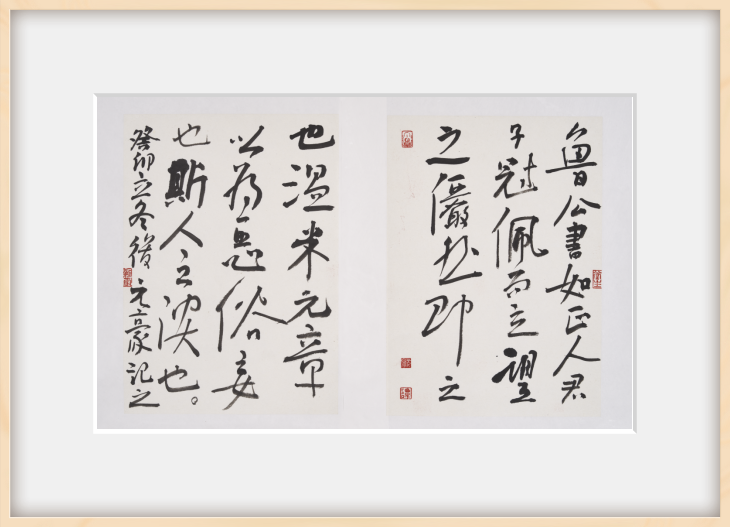 魯公書如正人君
子冠佩而立望
之儼然即之
也溫米元章
以為惡俗妄
也斯人之谈也。
癸卯立冬後元豪記之